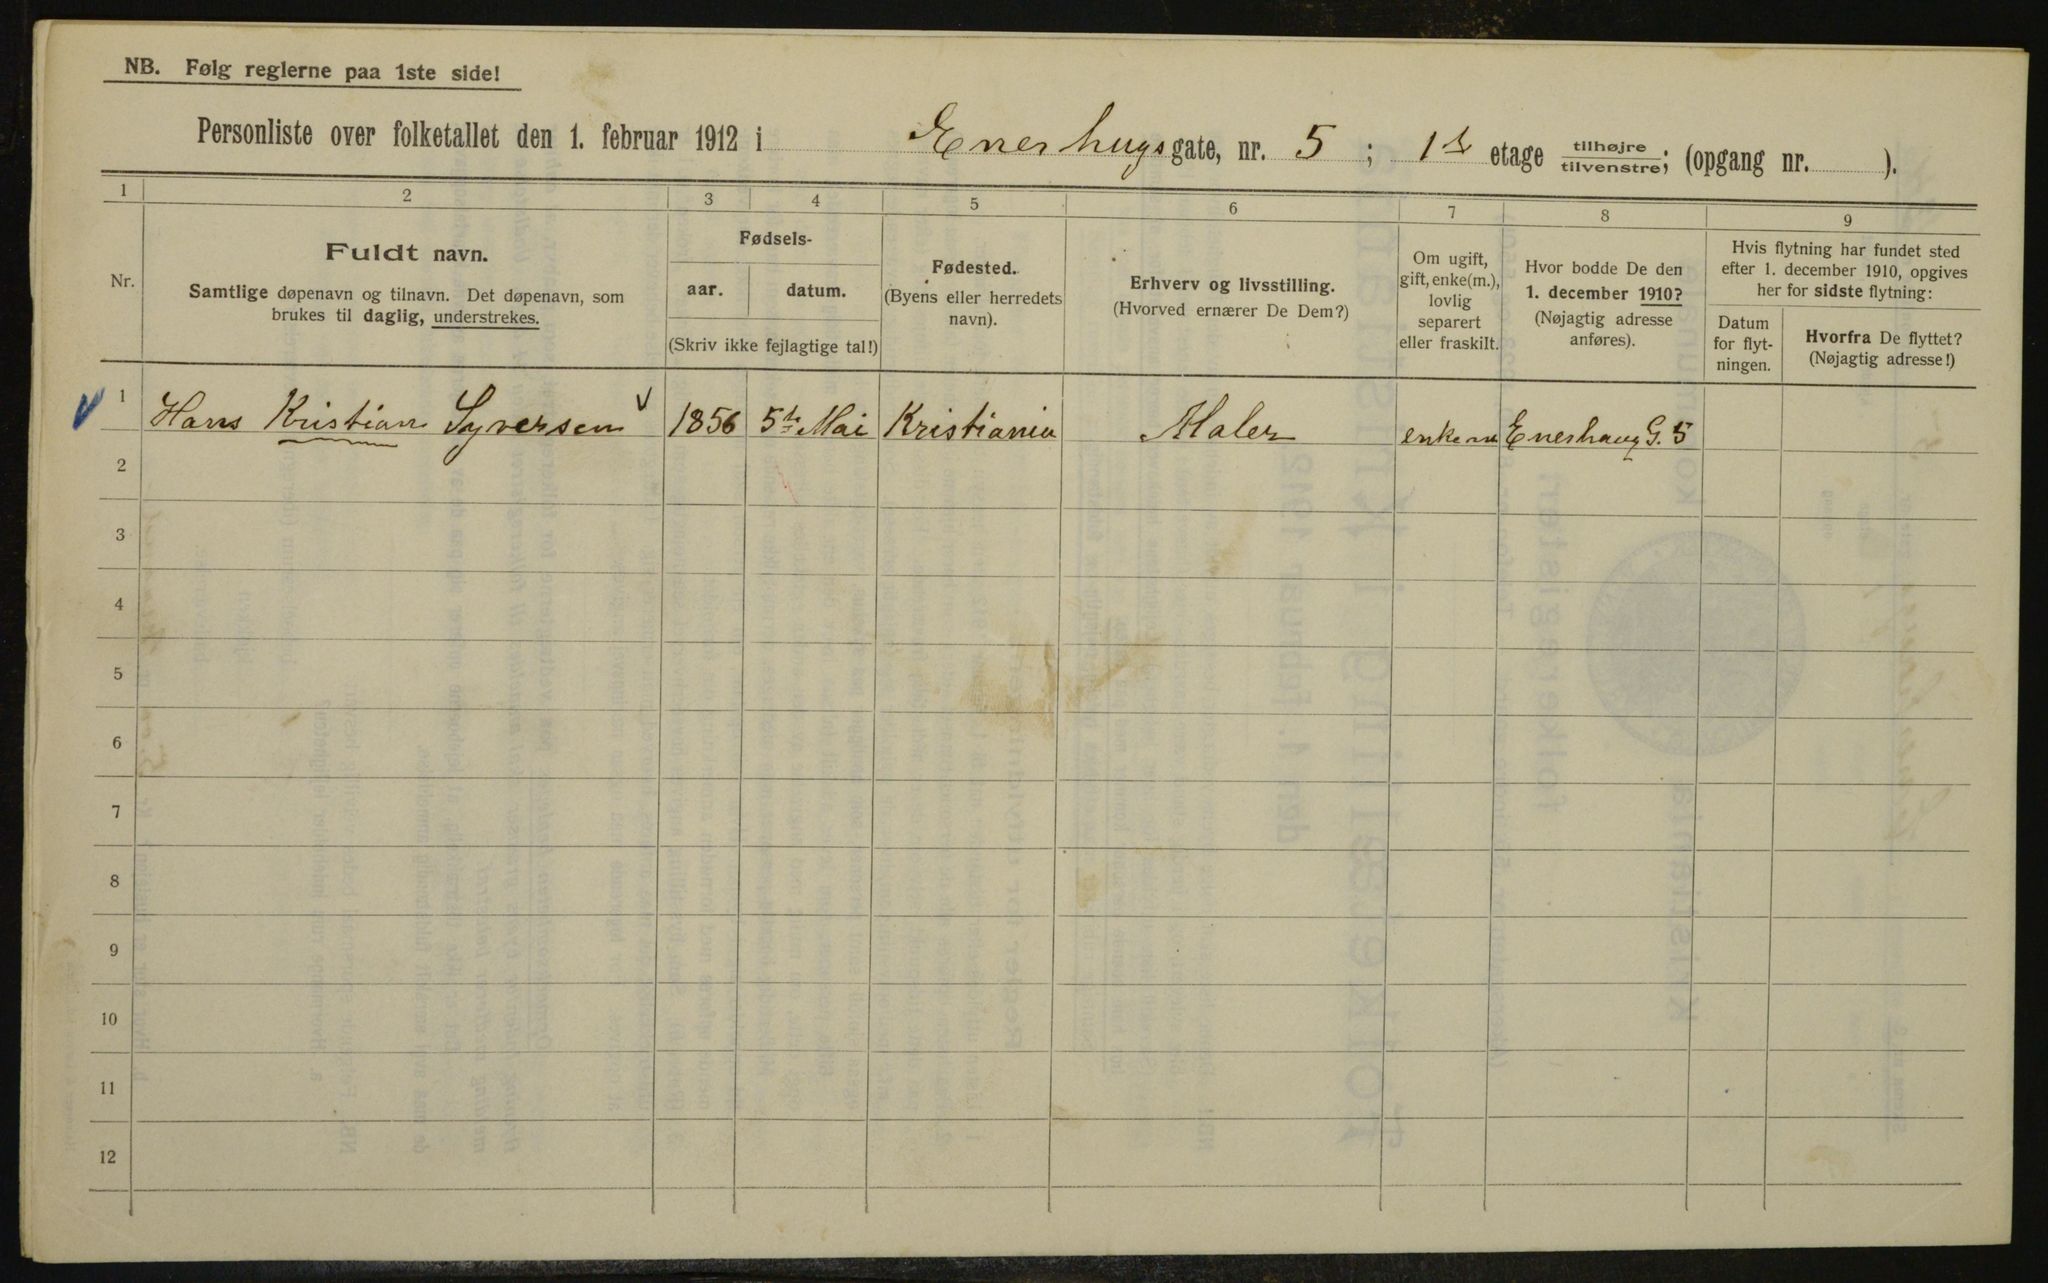 NB. Følg reglerne paa 1ste side!
Personliste over folketallet den 1. februar 1912 i Enerhugsgate, nr. 5; 1ste etage tilhøjre/tilvenstre; (opgang nr. ).
1 2 3 4 5 6 7 8 9
Nr.
Fuldt navn.
Samtlige døpenavn og tilnavn. Det døpenavn, som
brukes til daglig, understrekes.
Fødsels-
aar. datum.
(Skriv ikke fejlagtige tal!)
Fødested.
(Byens eller herredets
navn).
Erhverv og livsstilling.
(Hvorved ernærer De Dem?)
Om ugift,
gift, enke(m.),
lovlig
separert
eller fraskilt.
Hvor bodde De den
1. december 1910?
(Nøjagtig adresse
anføres).
Hvis flytning har fundet sted
efter 1. december 1910, opgives
her for sidste flytning:
Datum
for flyt-
ningen.
Hvorfra De flyttet?
(Nøjagtig adresse!)
1 Hans Kristian Syversen 1856 5te Mai Kristiania Maler enkem Enerhaug G. 5
2
3
4
5
6
7
8
9
10
11
12